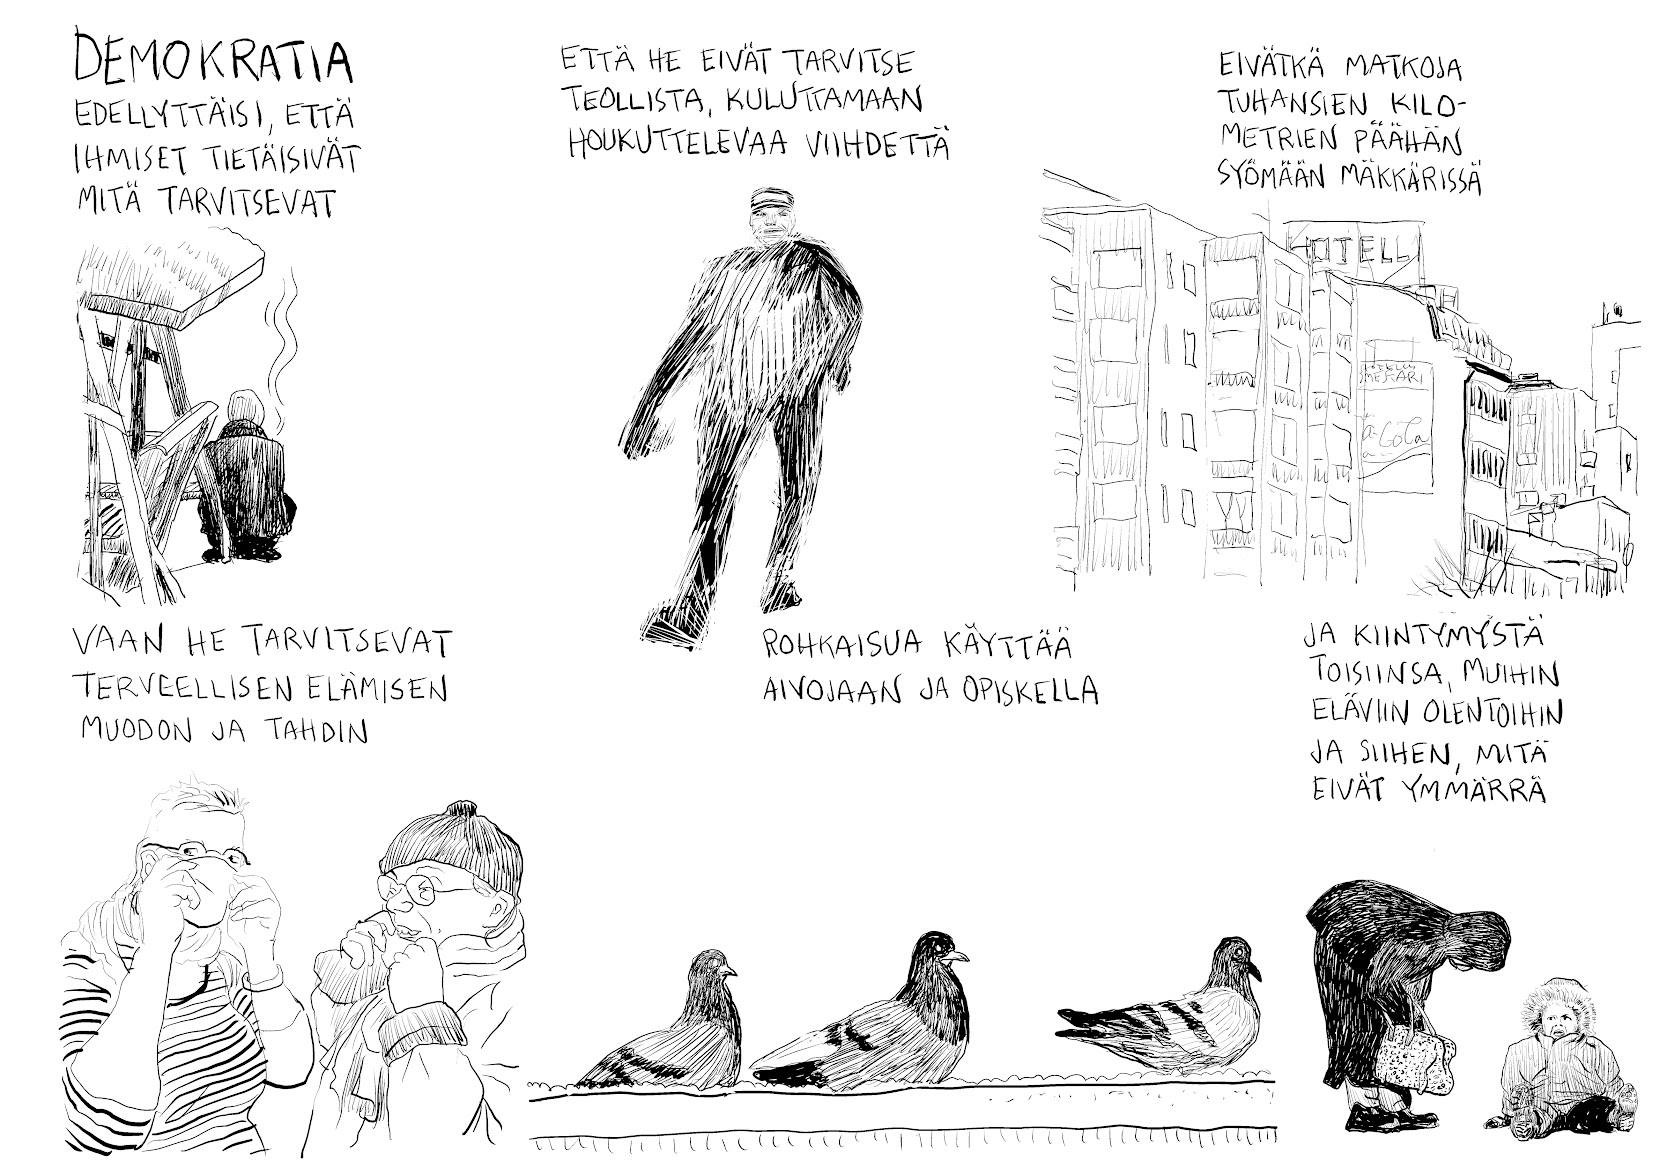 DEMOKRATIA
EDELLYTTÄISI, ETTÄ
IHMISET TIETÄISIVÄT
MITÄ TARVITSEVAT
ETTÄ HE EIVÄT TARVITSE
TEOLLISTA, KULUTTAMAAN
HOUKUTTELEVAA VIIHDETTÄ
EIVÄTKÄ MATKOJA
TUHANSIEN KILO-
METRIEN PÄÄHÄN
SYÖMÄÄN MÄKKÄRISSÄ
HOTELLI
a-Cola
VAAN HE TARVITSEVAT
TERVEELLISEN ELÄMISEN
MUODON JA TAHDIN
ROHKAISUA KÄYTTÄÄ
AIVOJAAN JA OPISKELLA
JA KIINTYMYSTÄ
TOISIINSA, MUIHIN
ELÄVIIN OLENTOIHIN
JA SIIHEN, MITÄ
EIVÄT YMMÄRRÄ